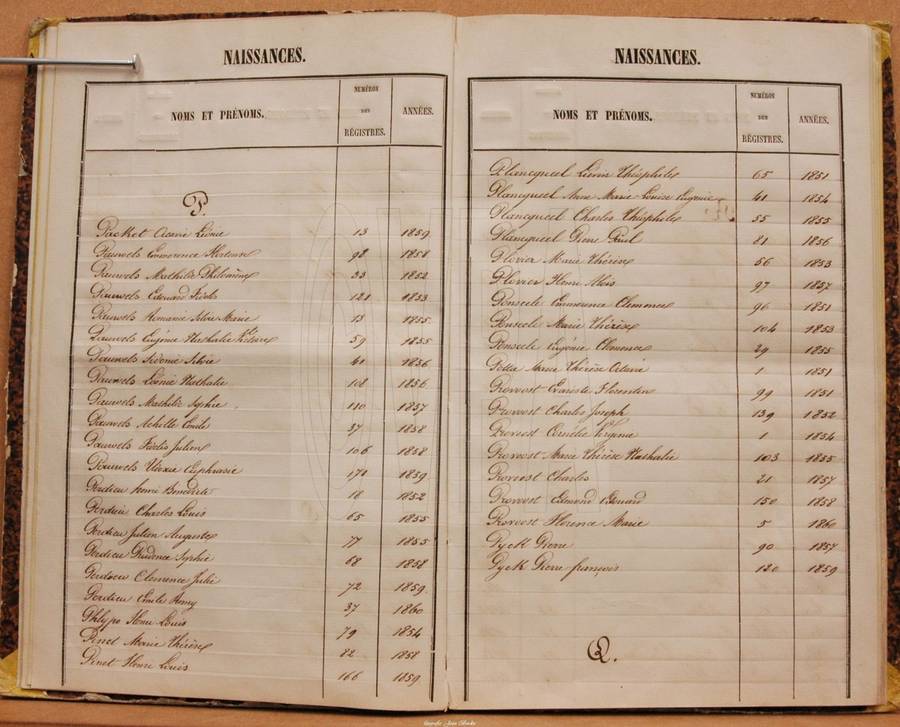 NAISSANCES.
NOMS ET PRÉNOMS. NUMÉROS DES RÉGISTRES. ANNÉES.
P.
Packet Octavie Léonie 13 1859
Pauwels Emmerence Hortense 98 1851
Pauwels Mathilde Philomène 33 1852
Pauwels Edouard Fidèle 121 1853
Pauwels Romanie Silvie Marie 13 1855
Pauwels Eugénie Nathalie 59 1855
Pauwels Sidonie Silvie 41 1856
Pauwels Léonie Nathalie 108 1856
Pauwels Mathilde Sophie 110 1857
Pauwels Achille Emile 37 1858
Pauwels Fidèle Julien 106 1858
Pauwels Euphrasie 170 1859
Perdieu Henri Benedicte 18 1852
Perdieu Charles Louis 65 1855
Perdieu Julien Auguste 77 1855
Perdieu Prudence Sophie 68 1858
Perdieu Clemence Julie 72 1859
Perdieu Emile Remy 37 1860
Phlypo Henri Louis 79 1854
Pinet Marie Thérèse 82 1858
Pinet Henri Louis 166 1859
NAISSANCES.
NOMS ET PRÉNOMS. NUMÉROS DES RÉGISTRES. ANNÉES.
Plancqueel Théophile 65 1851
Plancqueel Anne Marie Louise Eugénie 41 1854
Plancqueel Charles Théophile 55 1855
Plancqueel Réné Paul 81 1856
Plovier Marie Thérèse 56 1853
Plovier Henri Aloïs 97 1857
Ponseele Emmerence Clemence 96 1851
Ponseele Marie Thérèse 104 1853
Ponseele Eugénie Clemence 29 1855
Potta Marie Thérèse Octavie 1 1851
Provoost Evariste Florentin 99 1851
Provoost Charles Joseph 139 1852
Provoost Cornélie Virginie 1 1854
Provoost Marie Thérèse Nathalie 103 1855
Provoost Charles 21 1857
Provoost Edmond Edouard 150 1858
Provoost Florence Marie 5 1860
Pyck Pierre 90 1857
Pyck Pierre françois 120 1859
Q.